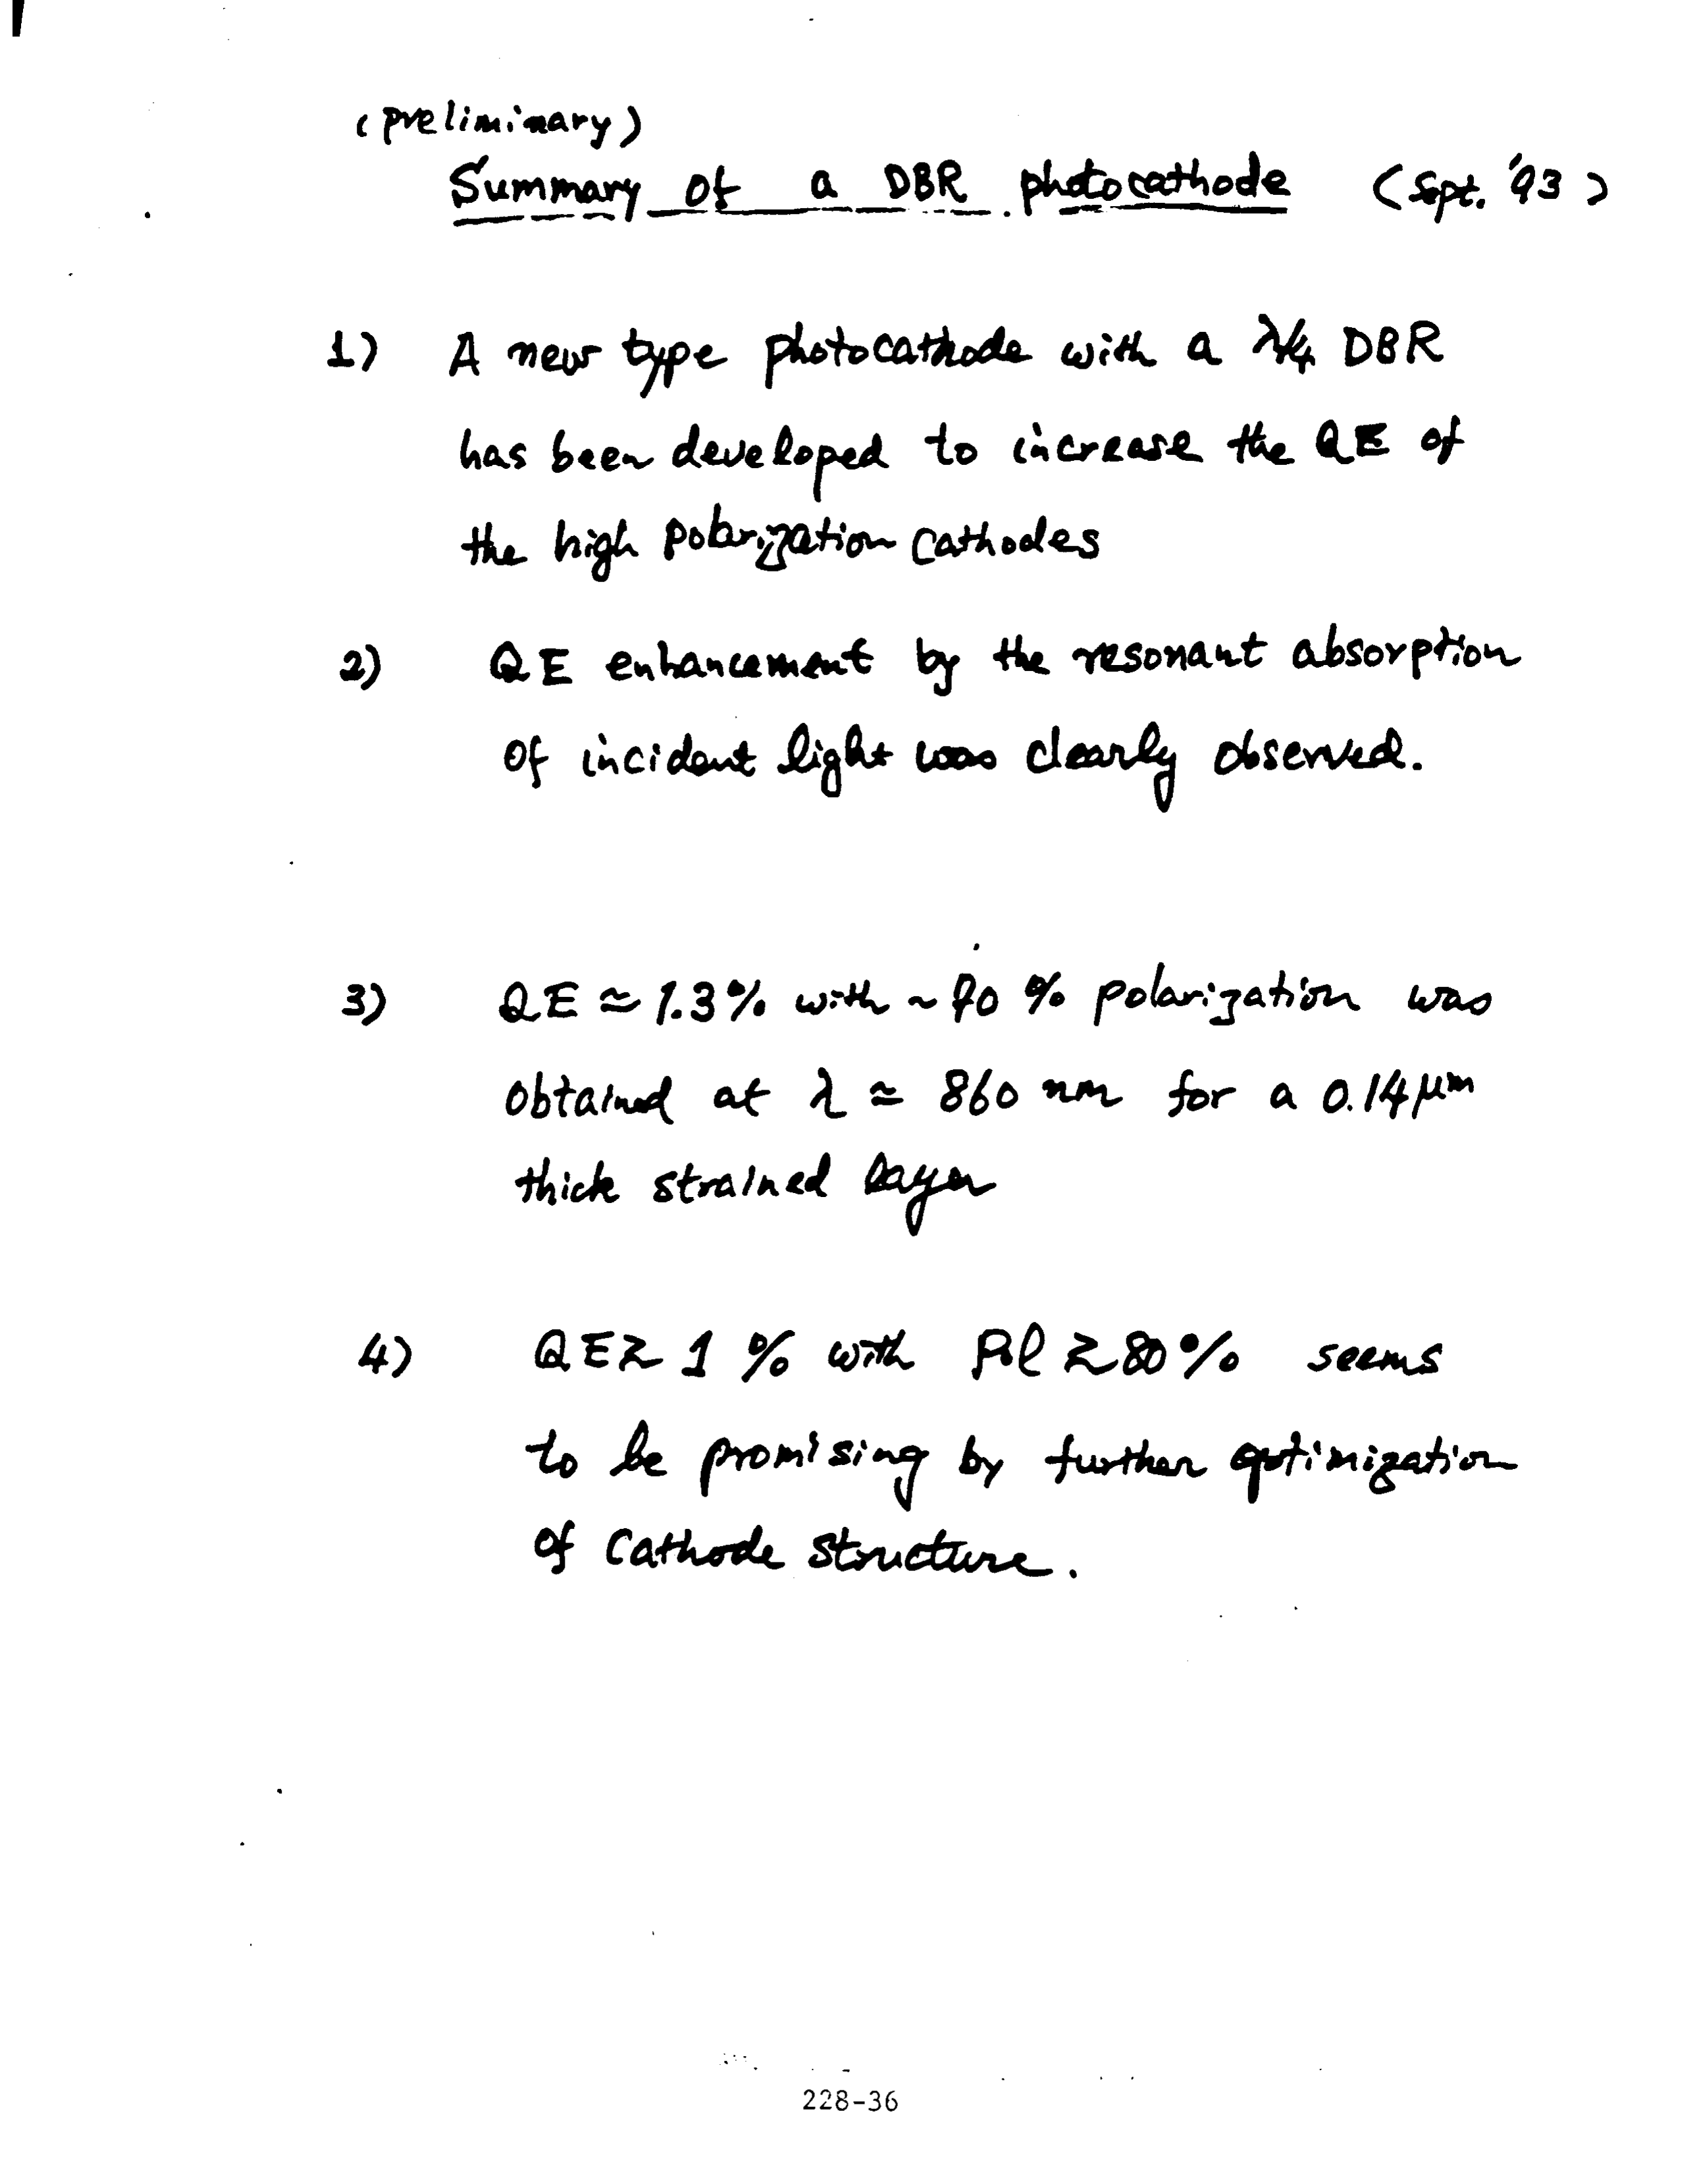 (preliminary)
Summary of a DBR photocathode (Sept. '93)
1) A new type photocathode with a λ/4 DBR
has been developed to increase the QE of
the high polarization cathodes
2) QE enhancement by the resonant absorption
of incident light was clearly observed.
3) QE ≃ 1.3% with ~ % polarization was
obtained at λ ≃ 860 nm for a 0.14 μm
thick strained layer
4) QE ≳ 1 % with Pol ≳ 80% seems
to be promising by further optimization
of cathode structure.
228-36